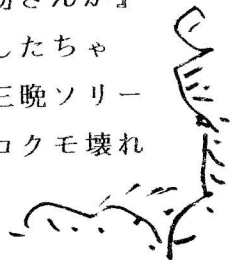 さんが』
したちゃ
三晩ソリー
クモ壊れ